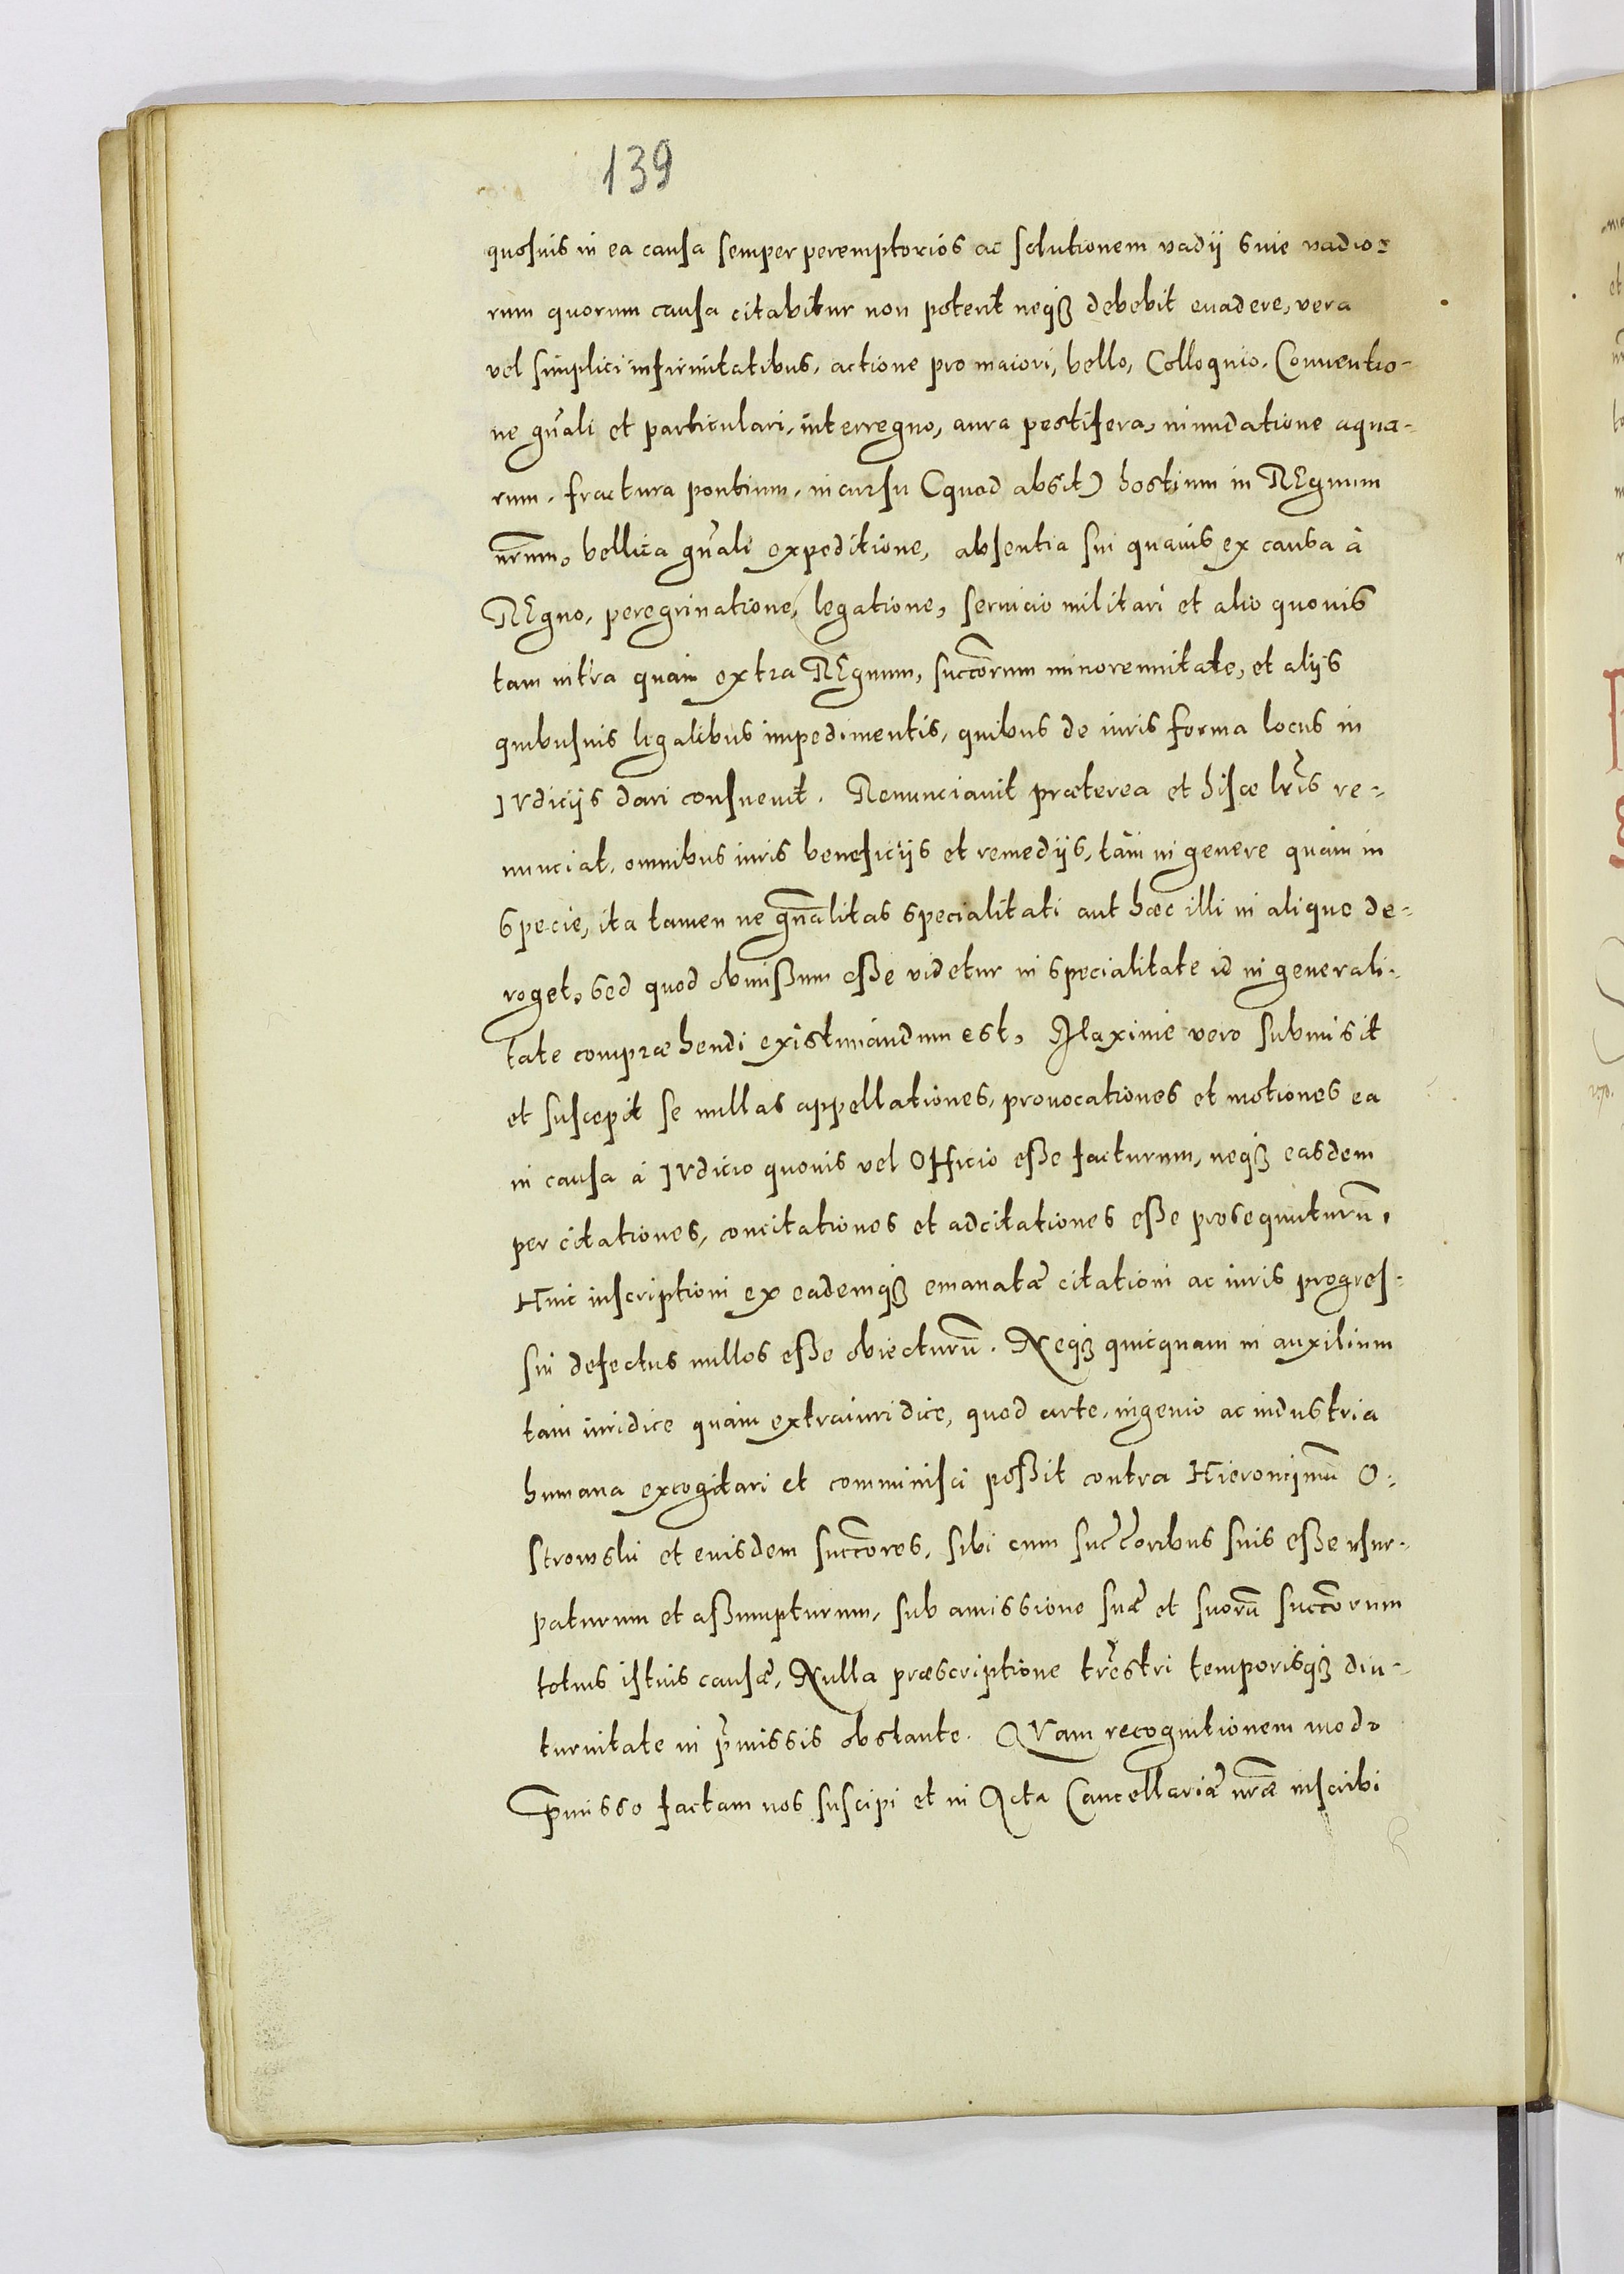 139
quosuis in ea causa semper peremptorios ac solutionem vadij siue vadio-
rum quorum causa citabitur non poterit neqȝ debebit euadere, vera
vel simplici infirmitatibus, actione pro maiori, bello, Colloquio, Conuentio-
ne gñali et particulari, interregno, aura pestifera, inundatione aqua-
rum, fractura pontium, incursu (quod absit) hostium in REgnum
nr̃um, bellica gñali expeditione, absentia sui quauis ex causa à
REgno, peregrinatione, legatione, seruicio militari et alio quouis
tam intra quàm extra REgnum, succõrum minorennitate, et alijs
quibusuis legalibus impedimentis, quibus de iuris forma locus in
IVdicijs dari consueuit. Renunciauit præterea et hisce lr̃is re-
nunciat, omnibus iuris beneficijs et remedijs, tàm in genere quàm in
specie, ita tamen ne gñalitas specialitati aut hæc illi in aliquo de-
roget, sed quod obmissum esse videtur in specialitate id in generali-
tate compræhendi existimandum est, Maxime vero submisit
et suscepit se nullas appellationes, prouocationes et motiones ea
in causa à IVdicio quouis vel Officio esse facturum, neqȝ easdem
per citationes, concitationes et adcitationes esse prosequuturũ,
Huic inscriptioni ex eademqȝ emanatæ citationi ac iuris progres-
sui defectus nullos esse obiecturũ. Neqȝ quicquam in auxilium
tam iuridice quàm extraiuridice, quod arte, ingenio ac industria
humana excogitari et comminisci possit contra Hieronimũ O-
strowski et eiusdem succõres, sibi cum succ̃oribus suis esse vsur-
paturum et assumpturum, sub amissione suæ et suorũ succõrum
totius istius causæ, Nulla præscriptione tr̃estri temporisqȝ diu-
turnitate in p̃missis obstante. QVam recognitionem modo
p̃misso factam nos suscipi et in Acta Cancellariæ nr̃æ inscribi